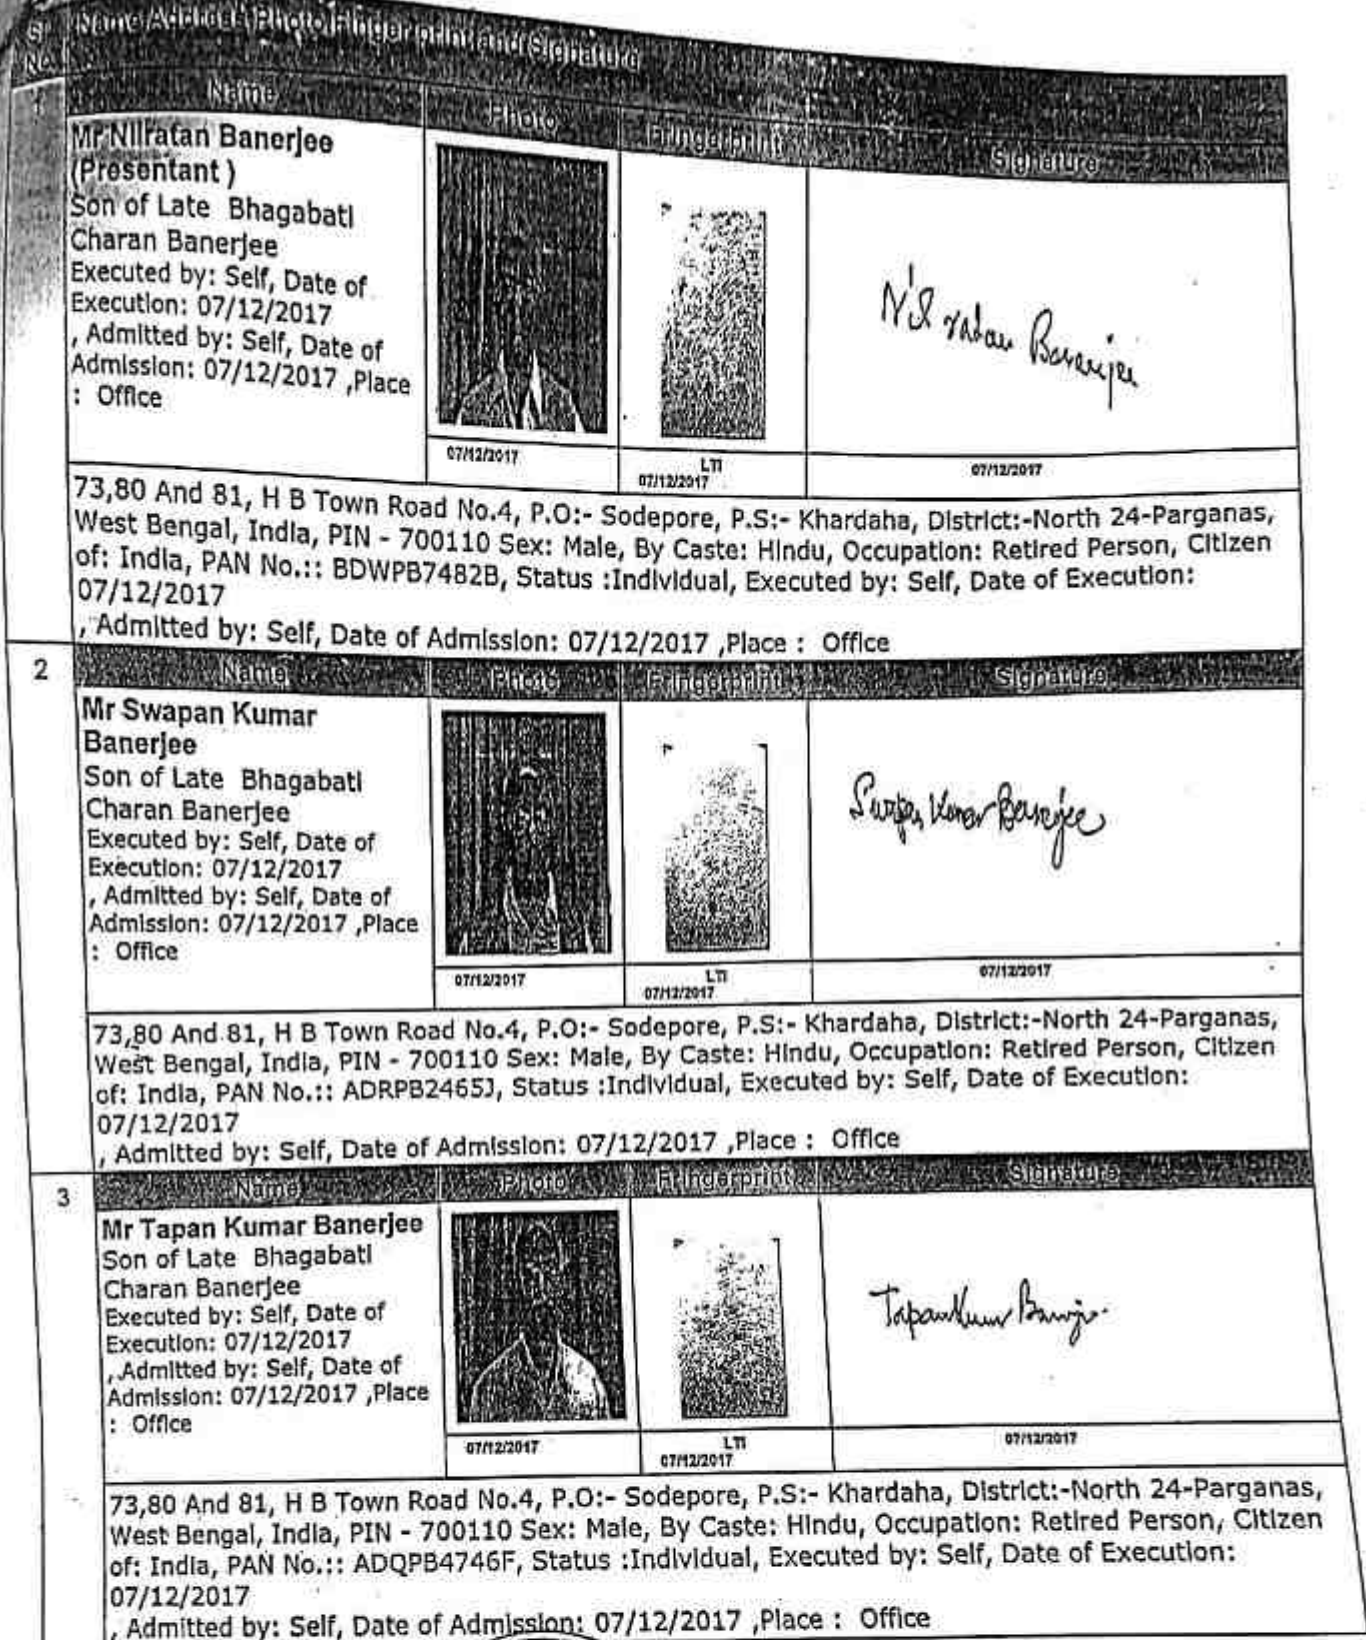 Sl No. Name, Address, Photo, Finger print and Signature
1 Name Photo Fringerprint Signature
Mr Nilratan Banerjee
(Presentant )
Son of Late Bhagabati
Charan Banerjee
Executed by: Self, Date of
Execution: 07/12/2017
, Admitted by: Self, Date of
Admission: 07/12/2017 ,Place
: Office
Nilratan Banerjee
07/12/2017
LTI
07/12/2017
07/12/2017
73,80 And 81, H B Town Road No.4, P.O:- Sodepore, P.S:- Khardaha, District:-North 24-Parganas,
West Bengal, India, PIN - 700110 Sex: Male, By Caste: Hindu, Occupation: Retired Person, Citizen
of: India, PAN No.:: BDWPB7482B, Status :Individual, Executed by: Self, Date of Execution:
07/12/2017
, Admitted by: Self, Date of Admission: 07/12/2017 ,Place : Office
2 Name Photo Fringerprint Signature
Mr Swapan Kumar
Banerjee
Son of Late Bhagabati
Charan Banerjee
Executed by: Self, Date of
Execution: 07/12/2017
, Admitted by: Self, Date of
Admission: 07/12/2017 ,Place
: Office
Swapan Kumar Banerjee
07/12/2017
LTI
07/12/2017
07/12/2017
73,80 And 81, H B Town Road No.4, P.O:- Sodepore, P.S:- Khardaha, District:-North 24-Parganas,
West Bengal, India, PIN - 700110 Sex: Male, By Caste: Hindu, Occupation: Retired Person, Citizen
of: India, PAN No.:: ADRPB2465J, Status :Individual, Executed by: Self, Date of Execution:
07/12/2017
, Admitted by: Self, Date of Admission: 07/12/2017 ,Place : Office
3 Name Photo Fringerprint Signature
Mr Tapan Kumar Banerjee
Son of Late Bhagabati
Charan Banerjee
Executed by: Self, Date of
Execution: 07/12/2017
, Admitted by: Self, Date of
Admission: 07/12/2017 ,Place
: Office
Tapan Kumar Banerjee
07/12/2017
LTI
07/12/2017
07/12/2017
73,80 And 81, H B Town Road No.4, P.O:- Sodepore, P.S:- Khardaha, District:-North 24-Parganas,
West Bengal, India, PIN - 700110 Sex: Male, By Caste: Hindu, Occupation: Retired Person, Citizen
of: India, PAN No.:: ADQPB4746F, Status :Individual, Executed by: Self, Date of Execution:
07/12/2017
, Admitted by: Self, Date of Admission: 07/12/2017 ,Place : Office